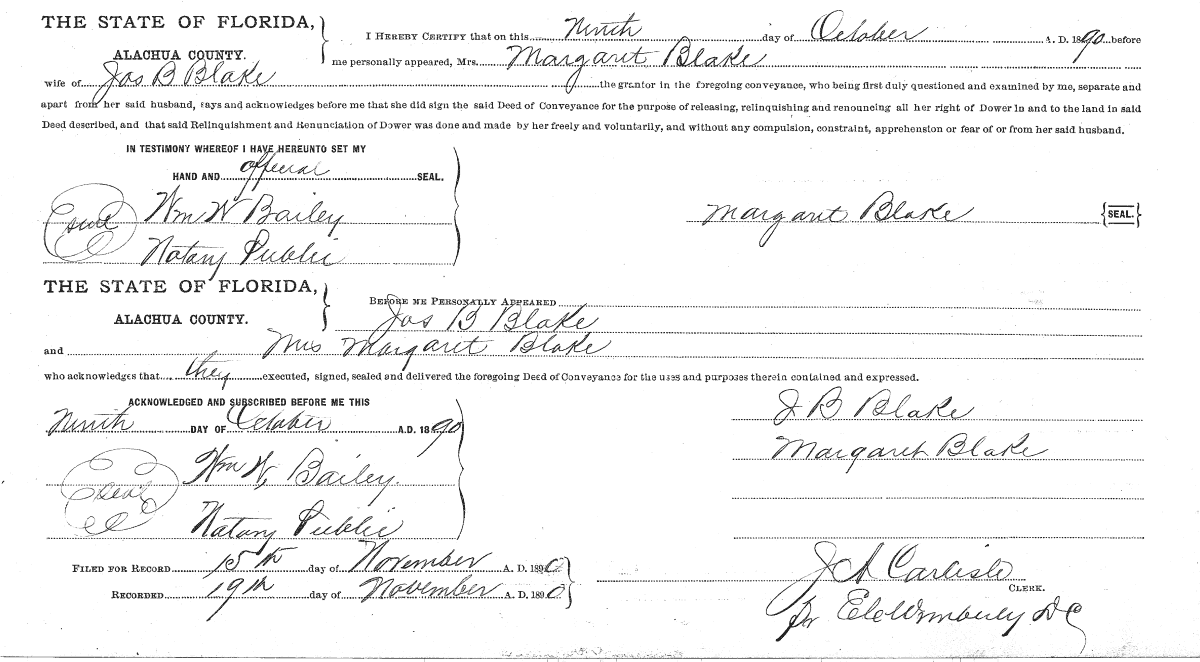 THE STATE OF FLORIDA,
ALACHUA COUNTY.
I HEREBY CERTIFY that on this Ninth day of October A. D. 1890 before
me personally appeared, Mrs. Margaret Blake
wife of Jos B Blake the grantor in the foregoing conveyance, who being first duly questioned and examined by me, separate and
apart from her said husband, says and acknowledges before me that she did sign the said Deed of Conveyance for the purpose of releasing, relinquishing and renouncing all her right of Dower in and to the land in said
Deed described, and that said Relinquishment and Renunciation of Dower was done and made by her freely and voluntarily, and without any compulsion, constraint, apprehension or fear of or from her said husband.
IN TESTIMONY WHEREOF I HAVE HEREUNTO SET MY
HAND AND official SEAL.
Seal Wm W Bailey
Notary Public
Margaret Blake {SEAL.}
THE STATE OF FLORIDA,
ALACHUA COUNTY.
BEFORE ME PERSONALLY APPEARED
Jos B Blake
and Mrs Margaret Blake
who acknowledges that they executed, signed, sealed and delivered the foregoing Deed of Conveyance for the uses and purposes therein contained and expressed.
ACKNOWLEDGED AND SUBSCRIBED BEFORE ME THIS
Ninth DAY OF October A.D. 1890
Seal Wm W, Bailey.
Notary Public
J B Blake
Margaret Blake
FILED FOR RECORD 15th day of November A. D. 1890
RECORDED 19th day of November A. D. 1890
J A Carlisle
CLERK.
Pr Wimberly DC